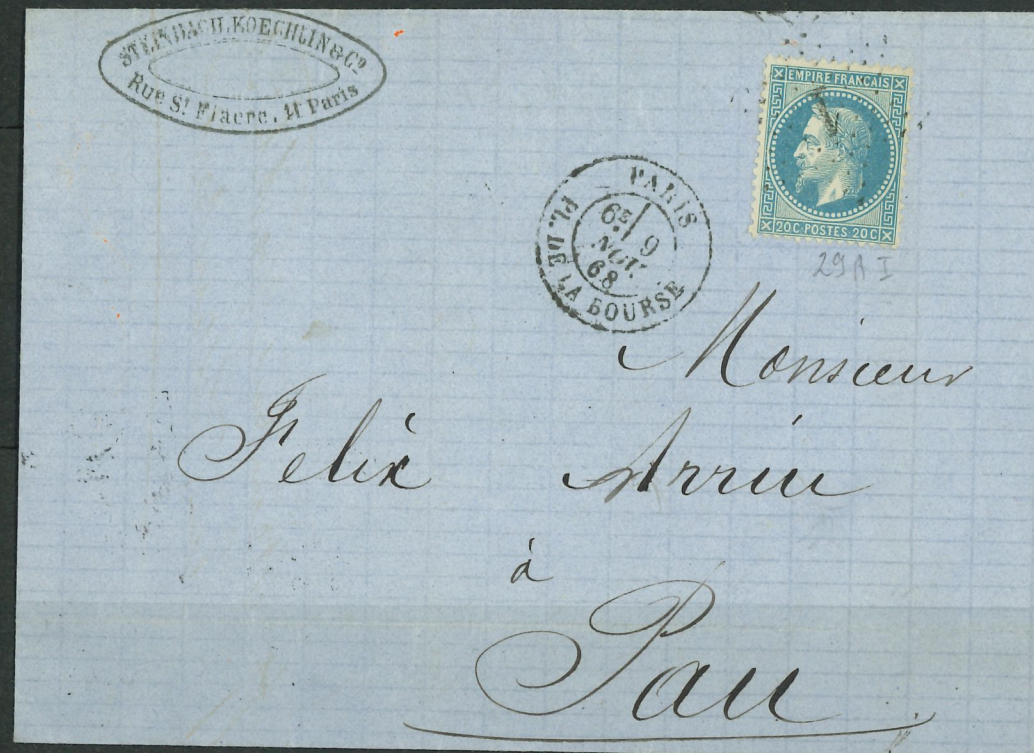 STEINBACH, KOECHLIN & Cº
Rue St Fiacre, 11 Paris
EMPIRE FRANÇAIS
1
20 C · POSTES · 20 C
29A I
PARIS
6E
9
NOV.
68
PL. DE LA BOURSE
Monsieur
Felix Arriu
à
Pau